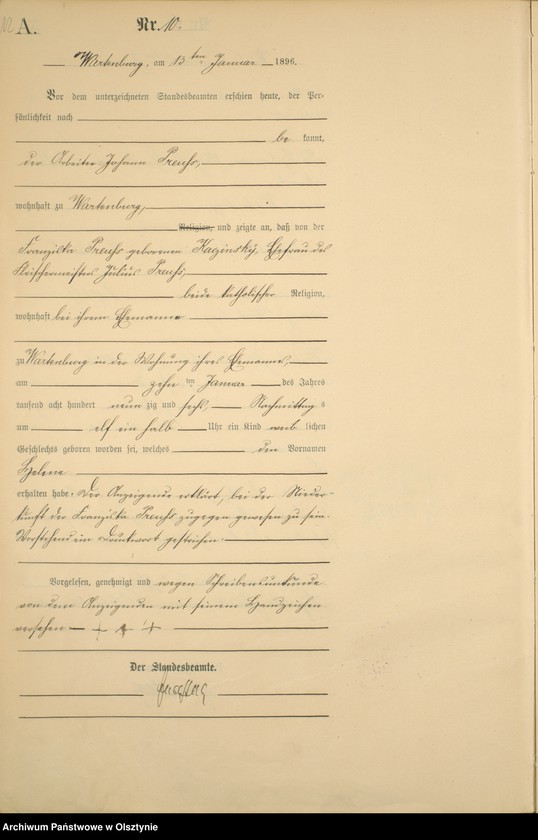 A.
Nr. 10.
Wartenburg, am 13 ten Januar 1896.
Vor dem unterzeichneten Standesbeamten erschien heute, der Per-
sönlichkeit nach
be kannt,
der Arbeiter Johann Preuss,
wohnhaft zu Wartenburg,
Religion, und zeigte an, daß von der
Franziska Preuss geborenen Kaginsky, Ehefrau des
Fleischermeisters Julius Preuss,
beide katholischer Religion,
wohnhaft bei ihrem Ehemanne
zu Wartenburg in der Wohnung ihres Ehemannes,
am zehn ten Januar des Jahres
tausend acht hundert neun zig und sechs, Nachmittag s
um elf ein halb Uhr ein Kind weib lichen
Geschlechts geboren worden sei, welches den Vornamen
Helene
erhalten habe. Der Anzeigende erklärt, bei der Nieder-
kunft der Franziska Preuss zugegen gewesen zu sein.
Vorstehend ein Druckwort gestrichen.
Vorgelesen, genehmigt und wegen Schreibensunkunde
von dem Anzeigenden mit seinem Handzeichen
versehen + + +
Der Standesbeamte.
Archiwum Państwowe w Olsztynie